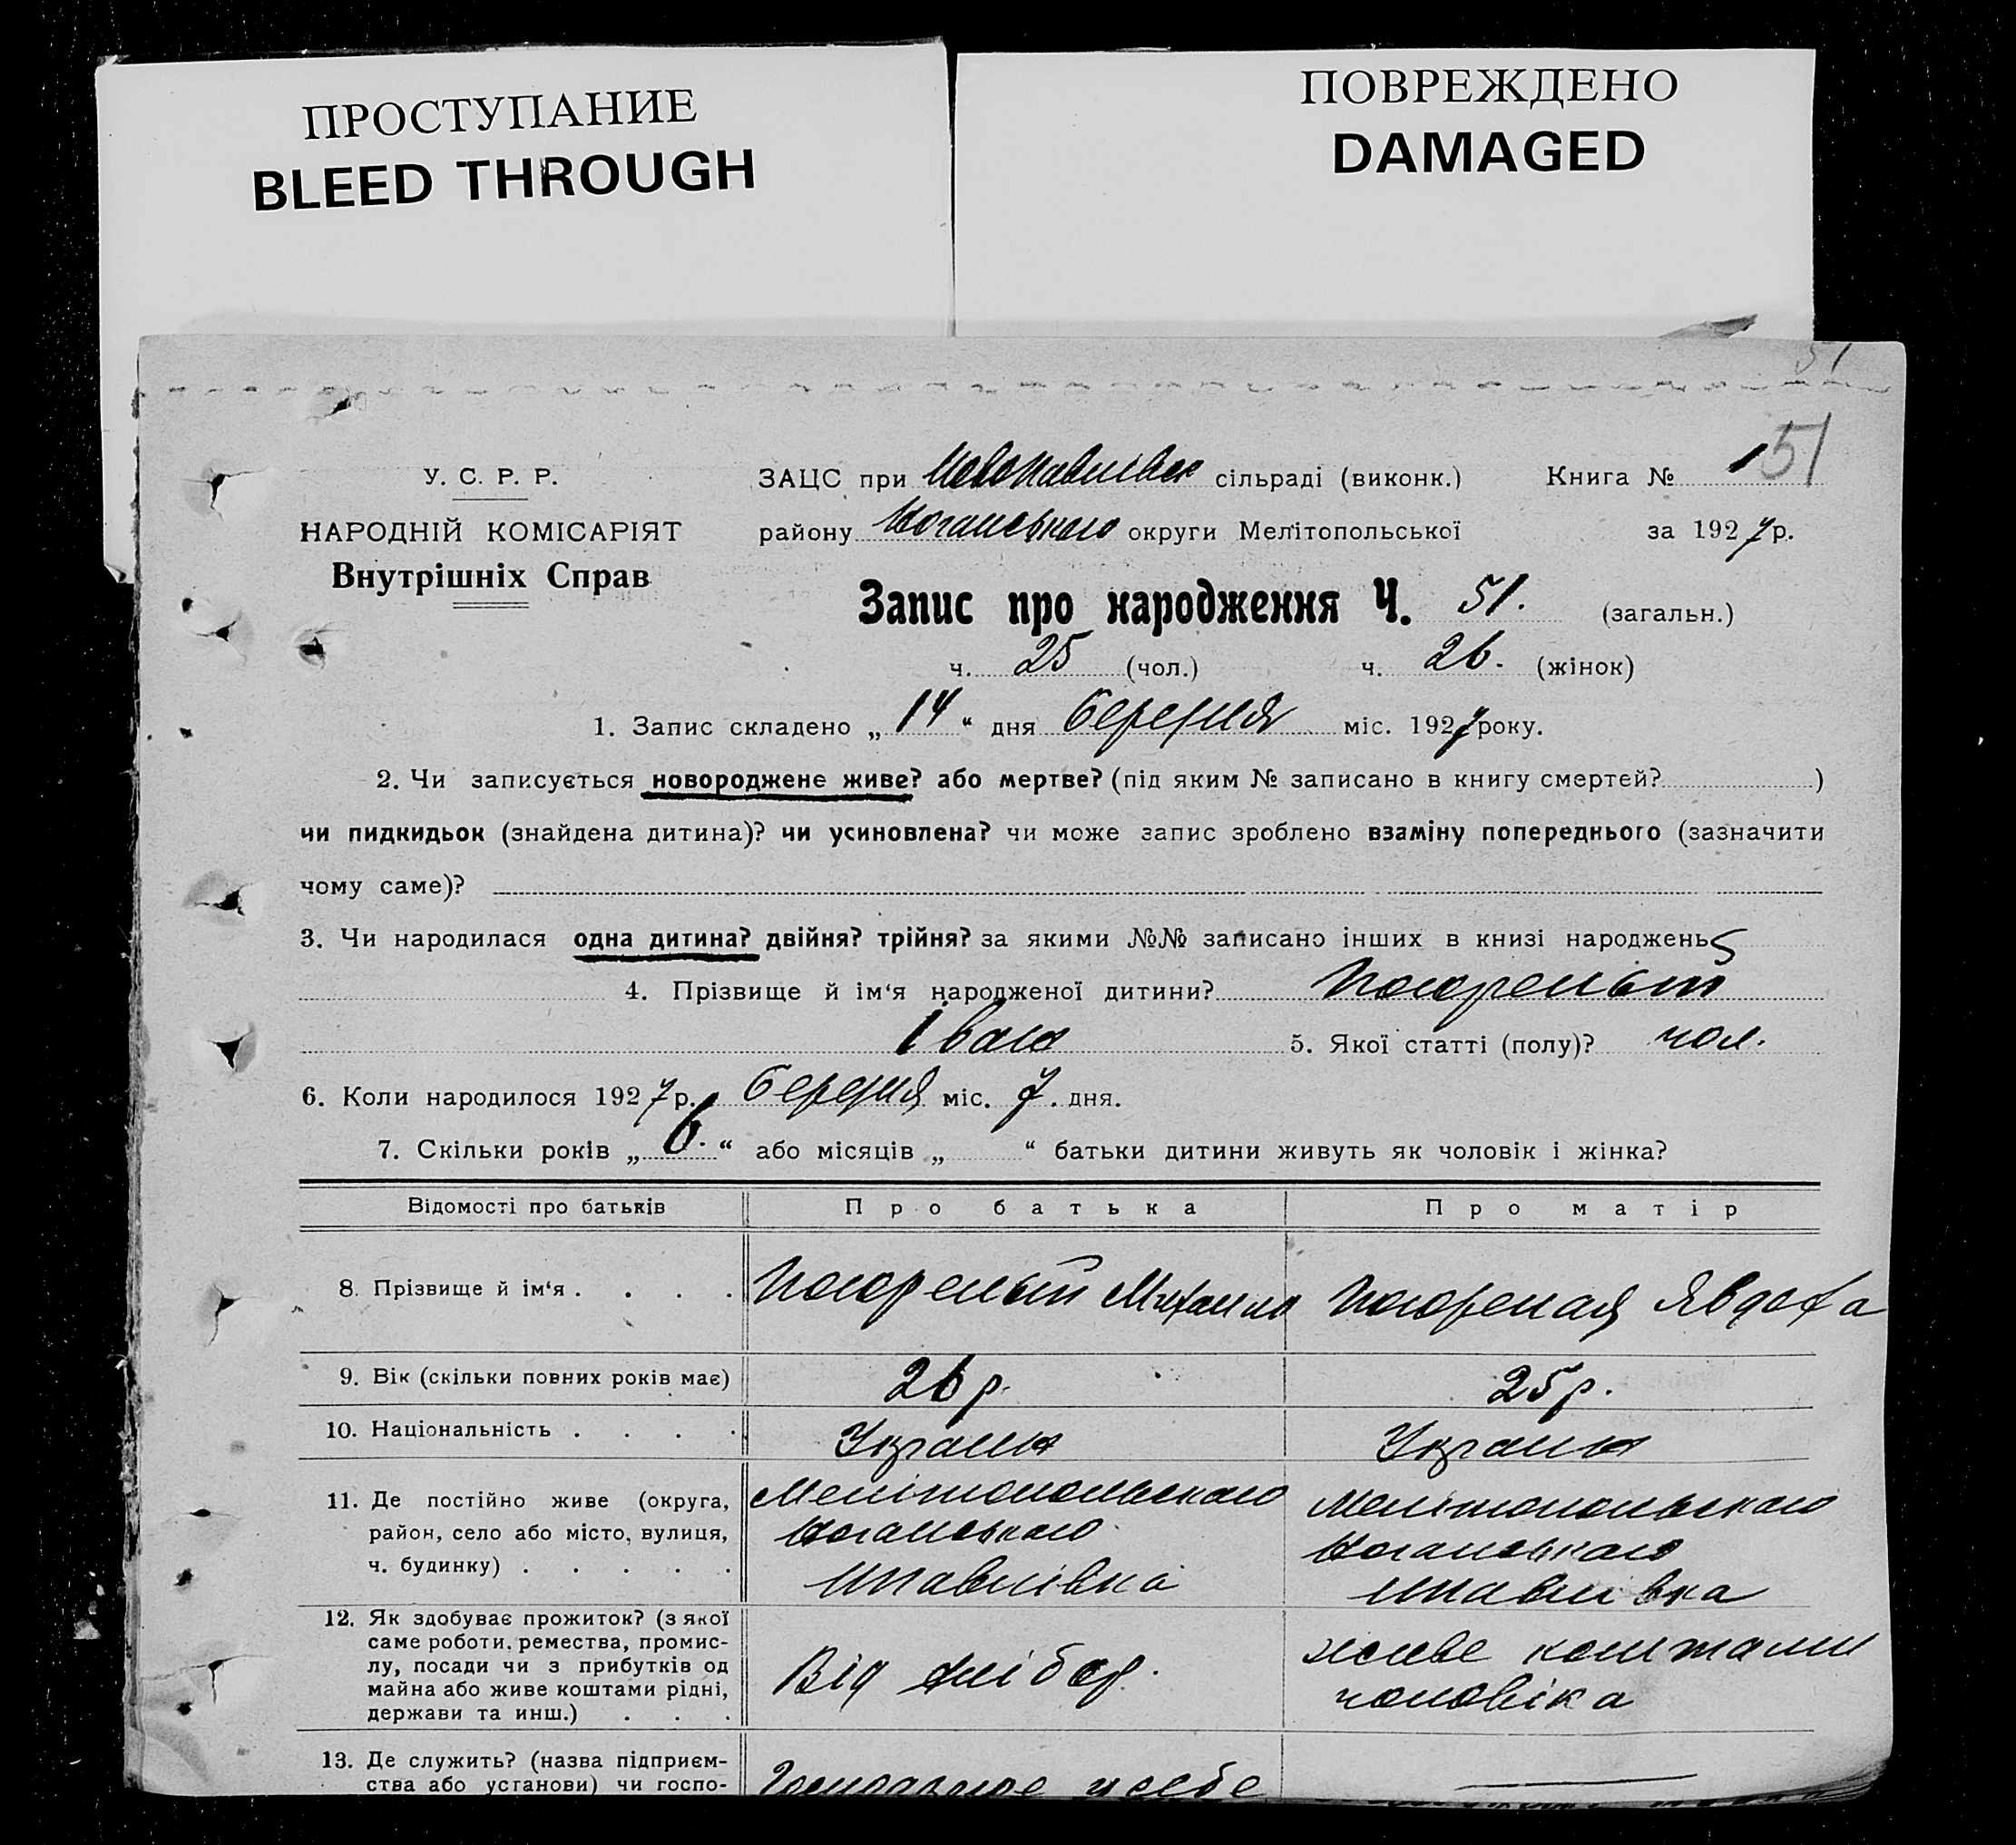 ПРОСТУПАНИЕ
BLEED THROUGH
ПОВРЕЖДЕНО
DAMAGED
51
51
У. С. Р. Р.
НАРОДНІЙ КОМІСАРІЯТ
Внутрішніх Справ
ЗАЦС при Новопавлівск сільраді (виконк.) Книга №
району Ногайського округи Мелітопольської за 1927р.
Запис про народження Ч. 51. (загальн.)
ч. 25 (чол.) ч. 26. (жінок)
1. Запис складено „14“ дня березня міс. 1927 року.
2. Чи записується новороджене живе? або мертве? (під яким № записано в книгу смертей? )
чи пидкидьок (знайдена дитина)? чи усиновлена? чи може запис зроблено взаміну попереднього (зазначити
чому саме)?
3. Чи народилася одна дитина? двійня? трійня? за якими №№ записано інших в книзі народжень
4. Прізвище й ім‘я народженої дитини? Погорелый
Іван 5. Якої статті (полу)? чол.
6. Коли народилося 1927р. березня міс. 7. дня.
7. Скільки років „6.“ або місяців „ “ батьки дитини живуть як чоловік і жінка?
Відомості про батьків Про батька Про матір
8. Прізвище й ім‘я . . . . Погорелый Михаило Погорелая Явдоха
9. Вік (скільки повних років має) 26 р. 25 р.
10. Національність . . . . Україн Україн
11. Де постійно живе (округа, Мелітопольского Мелітопольского
район, село або місто, вулиця, Ногайського Ногайського
ч. будинку) . . . . . Нпавлівка Нпавлівка
12. Як здобуває прожиток? (з якої
саме роботи, ремества, промис-
лу, посади чи з прибутків од
майна або живе коштами рідні,
держави та инш.) . . . Від хлібор. живе коштами
чоловіка
13. Де служить? (назва підприєм-
ства або установи) чи госпо-